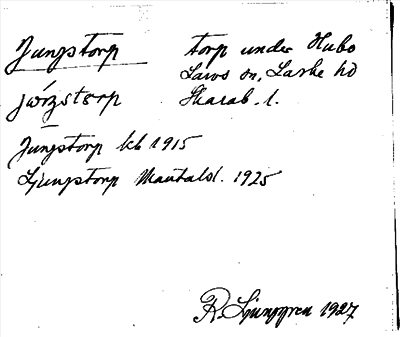 Jungstorp torp under Hubo
Lavs sn, Laske hd
jwŏŋstorp Skarab. l.
Jungstorp kb 1915
Ljungstorp Mantalsl. 1925
R. Ljunggren 1927